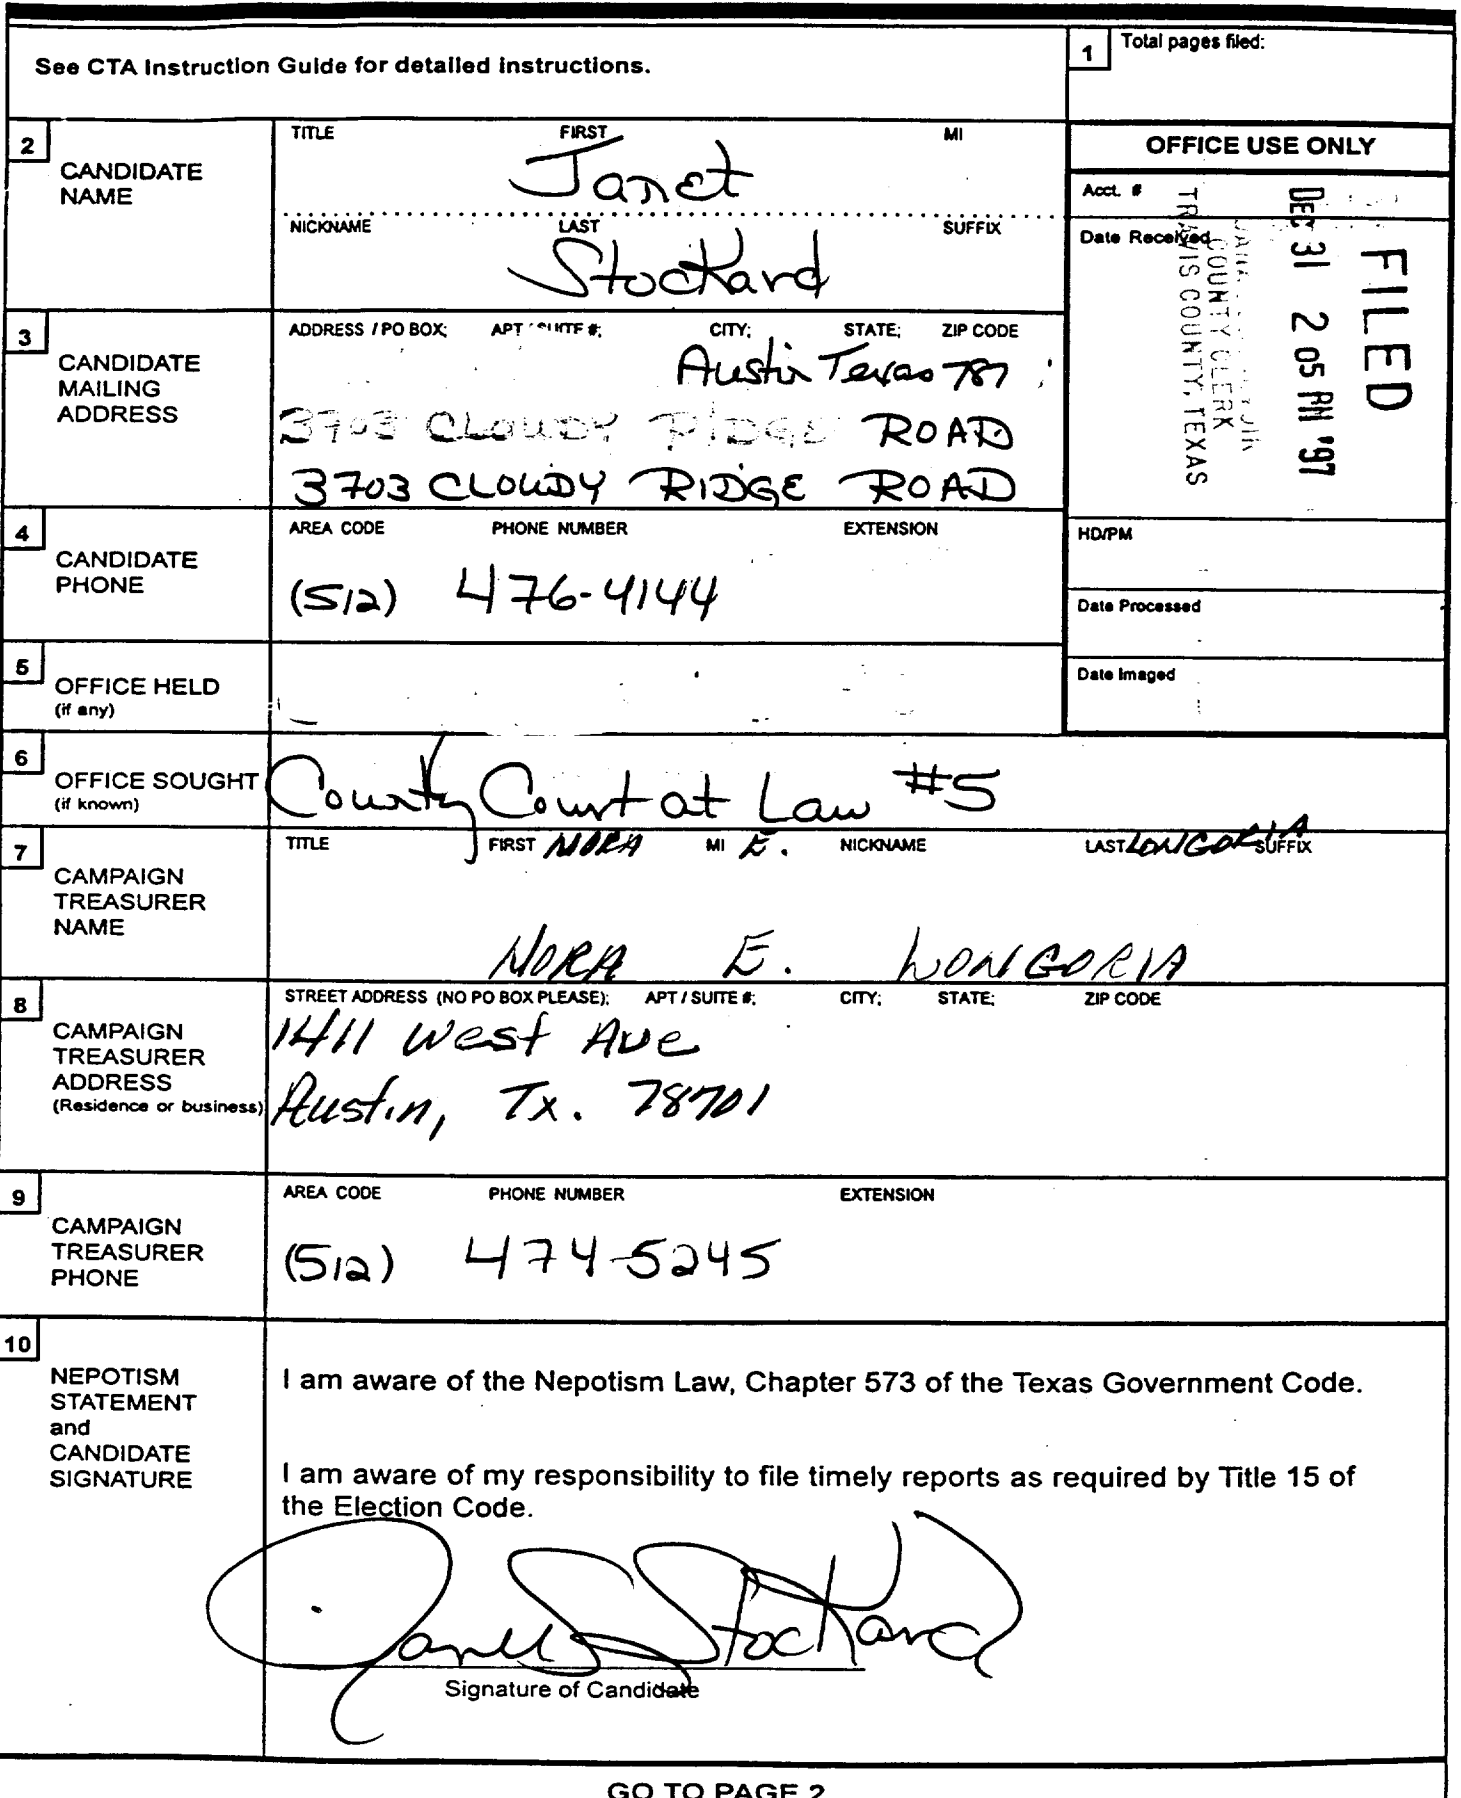 See CTA Instruction Guide for detailed instructions.
1 Total pages filed:
2 CANDIDATE NAME
TITLE FIRST MI
Janet
NICKNAME LAST SUFFIX
Stockard
OFFICE USE ONLY
Acct. #
Date Received
FILED
DEC 31 2 05 PM '97
COUNTY CLERK
TRAVIS COUNTY, TEXAS
3 CANDIDATE MAILING ADDRESS
ADDRESS / PO BOX; APT / SUITE #; CITY; STATE; ZIP CODE
Austin Texas 787
3703 CLOUDY RIDGE ROAD
3703 CLOUDY RIDGE ROAD
4 CANDIDATE PHONE
AREA CODE PHONE NUMBER EXTENSION
(512) 476-4144
HD/PM
Date Processed
Date Imaged
5 OFFICE HELD
(if any)
6 OFFICE SOUGHT
(if known)
County Court at Law #5
7 CAMPAIGN TREASURER NAME
TITLE FIRST NORA MI E. NICKNAME LAST LONGORIA SUFFIX
NORA E. LONGORIA
8 CAMPAIGN TREASURER ADDRESS
(Residence or business)
STREET ADDRESS (NO PO BOX PLEASE); APT / SUITE #; CITY; STATE; ZIP CODE
1411 West Ave
Austin, Tx. 78701
9 CAMPAIGN TREASURER PHONE
AREA CODE PHONE NUMBER EXTENSION
(512) 474-5245
10 NEPOTISM STATEMENT and CANDIDATE SIGNATURE
I am aware of the Nepotism Law, Chapter 573 of the Texas Government Code.
I am aware of my responsibility to file timely reports as required by Title 15 of
the Election Code.
Janet Stockard
Signature of Candidate
GO TO PAGE 2